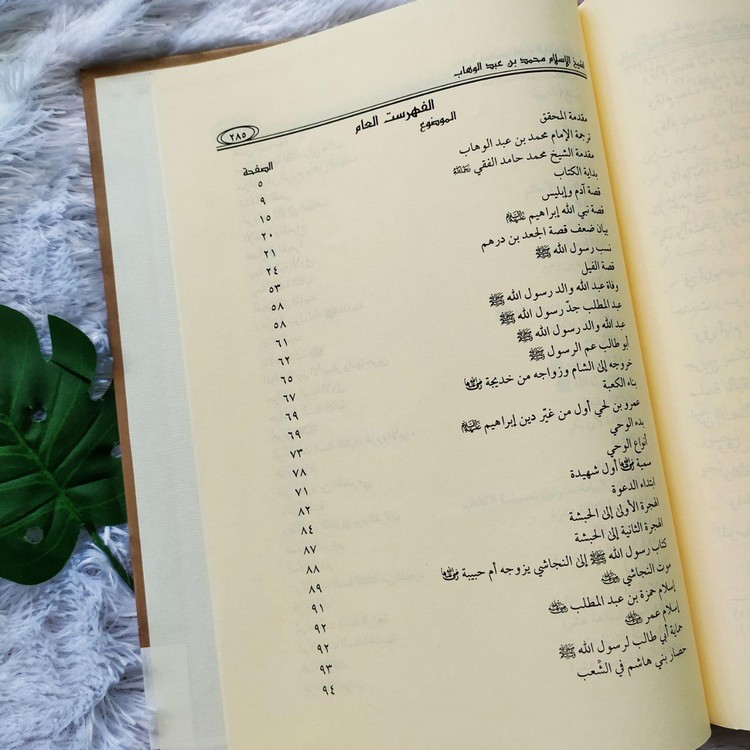 لشيخ الإسلام محمد بن عبد الوهاب ٢٨٥
الفهرست العام
الموضوع الصفحة
مقدمة المحقق ٥
ترجمة الإمام محمد بن عبد الوهاب ٩
مقدمة الشيخ محمد حامد الفقي رحمه الله ١٥
بداية الكتاب ٢٠
قصة آدم وإبليس ٢١
قصة نبي الله إبراهيم عليه السلام ٢٤
بيان ضعف قصة الجعد بن درهم ٥٣
نسب رسول الله ﷺ ٥٨
قصة الفيل ٥٨
وفاة عبد الله والد رسول الله ﷺ ٦١
عبد المطلب جدّ رسول الله ﷺ ٦٢
عبد الله والد رسول الله ﷺ ٦٥
أبو طالب عم الرسول ﷺ ٦٧
خروجه إلى الشام وزواجه من خديجة رضي الله عنها ٦٩
بناء الكعبة ٦٩
عمرو بن لحي أول من غيّر دين إبراهيم عليه السلام ٧٣
بدء الوحي ٧٨
أنواع الوحي ٧١
سمية رضي الله عنها أول شهيدة ٨٢
ابتداء الدعوة ٨٤
الهجرة الأولى إلى الحبشة ٨٧
الهجرة الثانية إلى الحبشة ٨٨
كتاب رسول الله ﷺ إلى النجاشي يزوجه أم حبيبة رضي الله عنها ٨٩
موت النجاشي رضي الله عنه ٩١
إسلام حمزة بن عبد المطلب رضي الله عنه ٩٢
إسلام عمر رضي الله عنه ٩٢
حماية أبي طالب لرسول الله ﷺ ٩٣
حصار بني هاشم في الشِّعب ٩٤